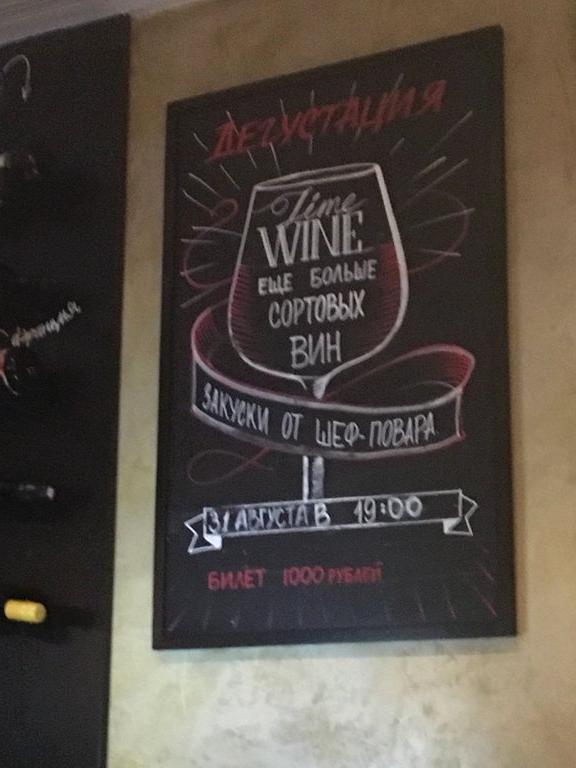 ДЕГУСТАЦИЯ
Time
WINE
ЕЩЕ БОЛЬШЕ
СОРТОВЫХ
ВИН
ЗАКУСКИ ОТ ШЕФ-ПОВАРА
31 АВГУСТА В 19:00
БИЛЕТ 1000 РУБЛЕЙ